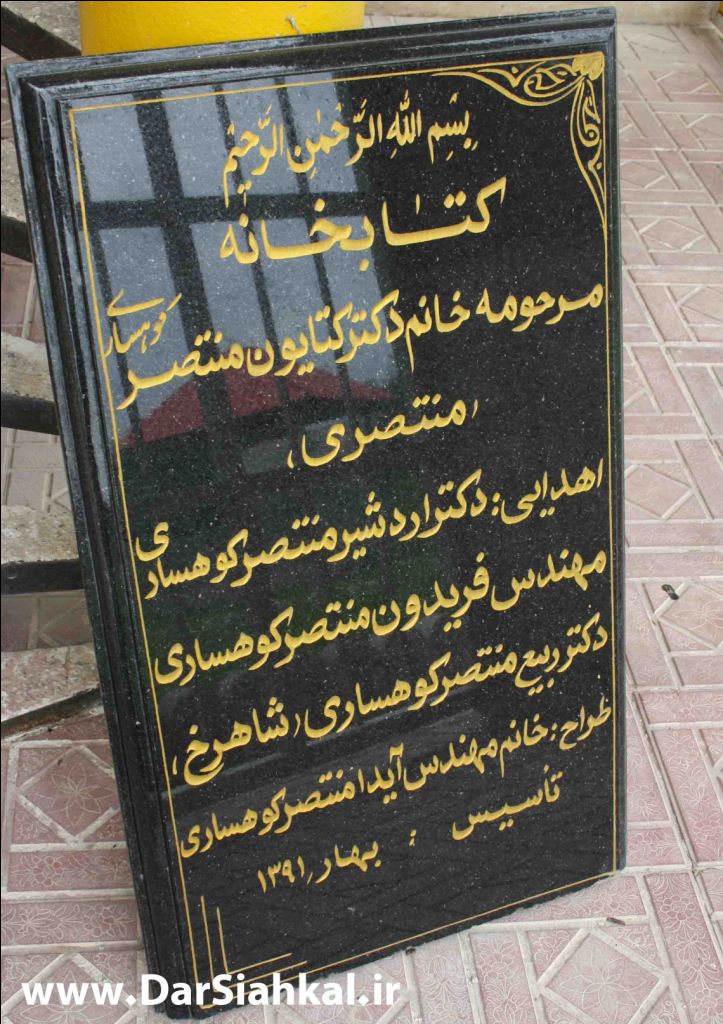 بِسْمِ اللهِ الرَّحْمٰنِ الرَّحیمْ
کتابخانه
مرحومه خانم دکتر کتایون منتصر کوهساری
(منتصری)
اهدایی: دکتر اردشیر منتصر کوهساری
مهندس فریدون منتصر کوهساری
دکتر ربیع منتصر کوهساری (شاهرخ)
طراح: خانم مهندس آیدا منتصر کوهساری
تأسیس : بهار ۱۳۹۱
www.DarSiahkal.ir